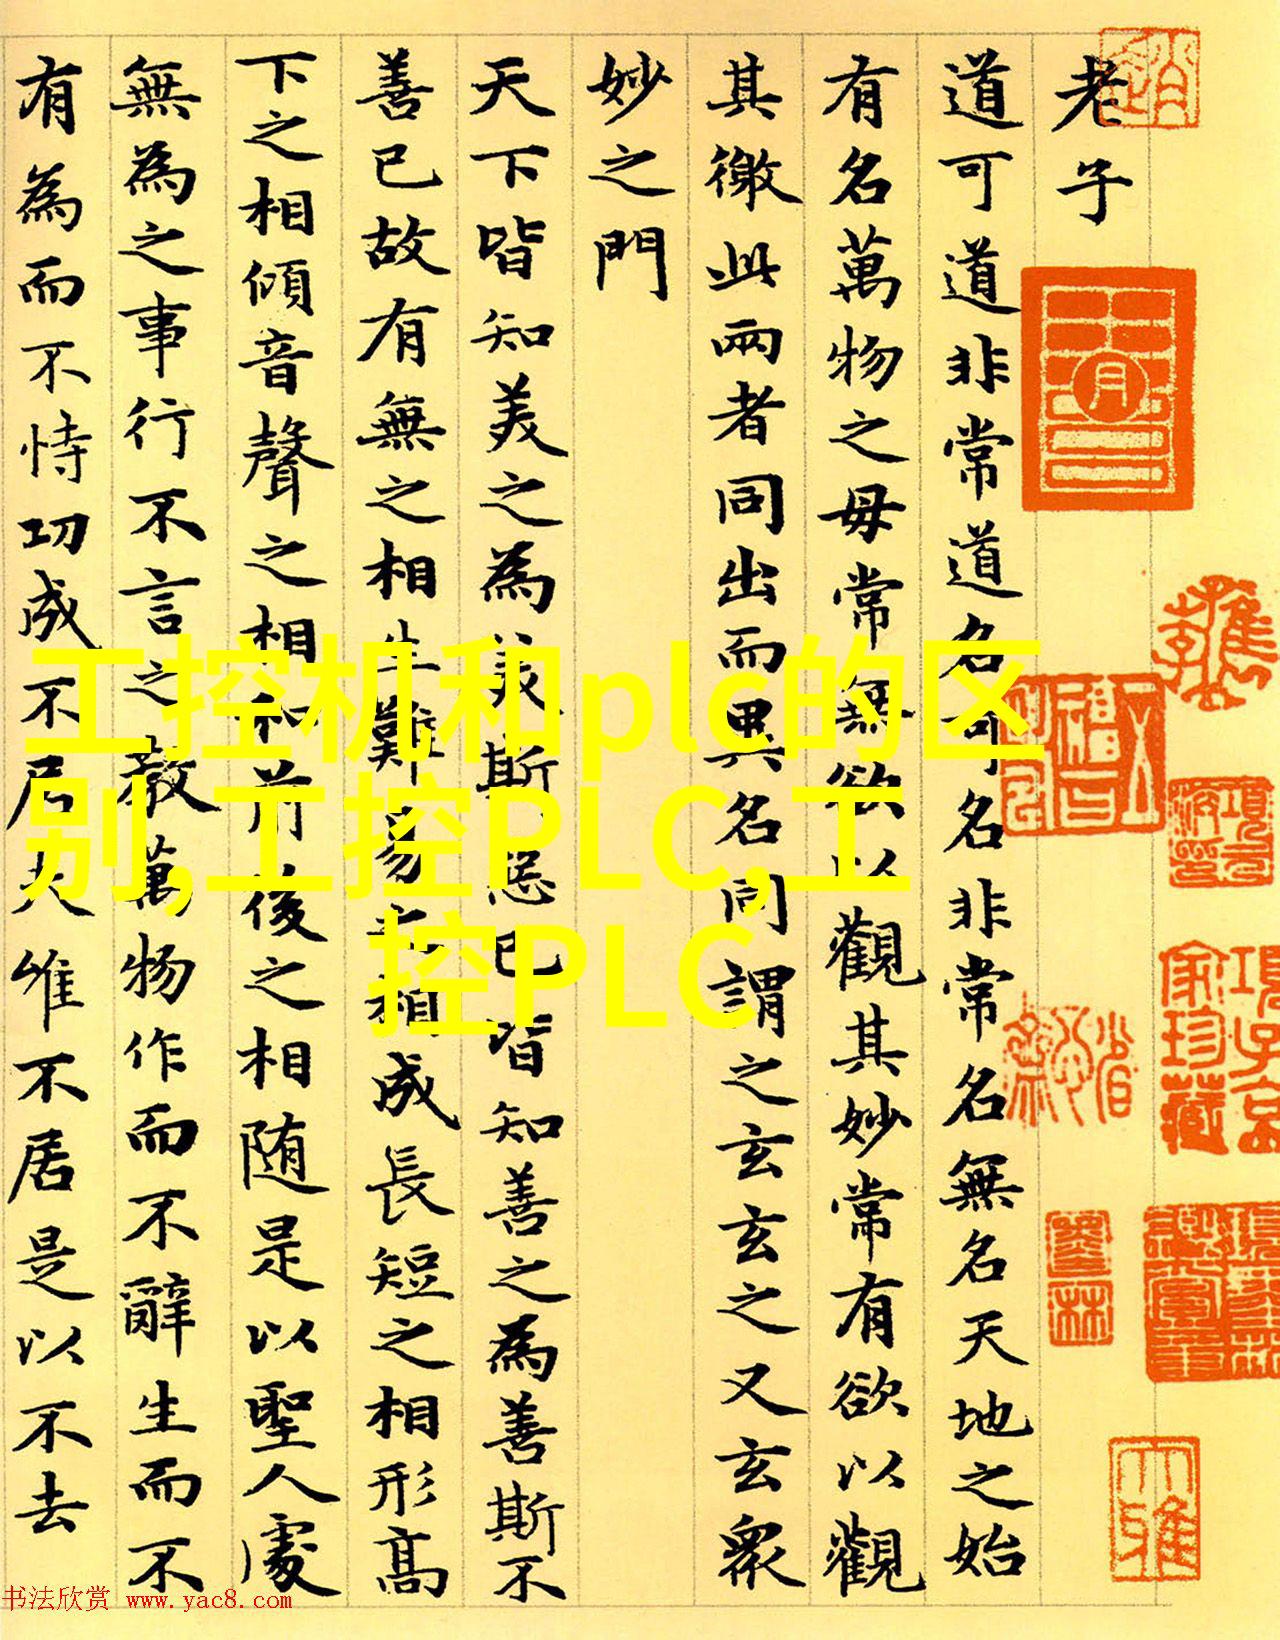 老子
道可道非常道名可名非常名無名天地之始
有名萬物之母常無欲以觀其妙常有欲以觀
其徼此兩者同出而異名同謂之玄玄之又玄衆
妙之門
天下皆知美之為美斯惡已皆知善之為善斯不
善已故有無之相生難易之相成長短之相形高
下之相傾音聲之相和前後之相随是以聖人處
無為之事行不言之教萬物作而不辭生而不
有為而不恃功成不居夫唯不居是以不去
工控机和plc的区
别,工控PLC,工
控PLC
項子京
家珍藏
书法欣赏 www.yac8.com